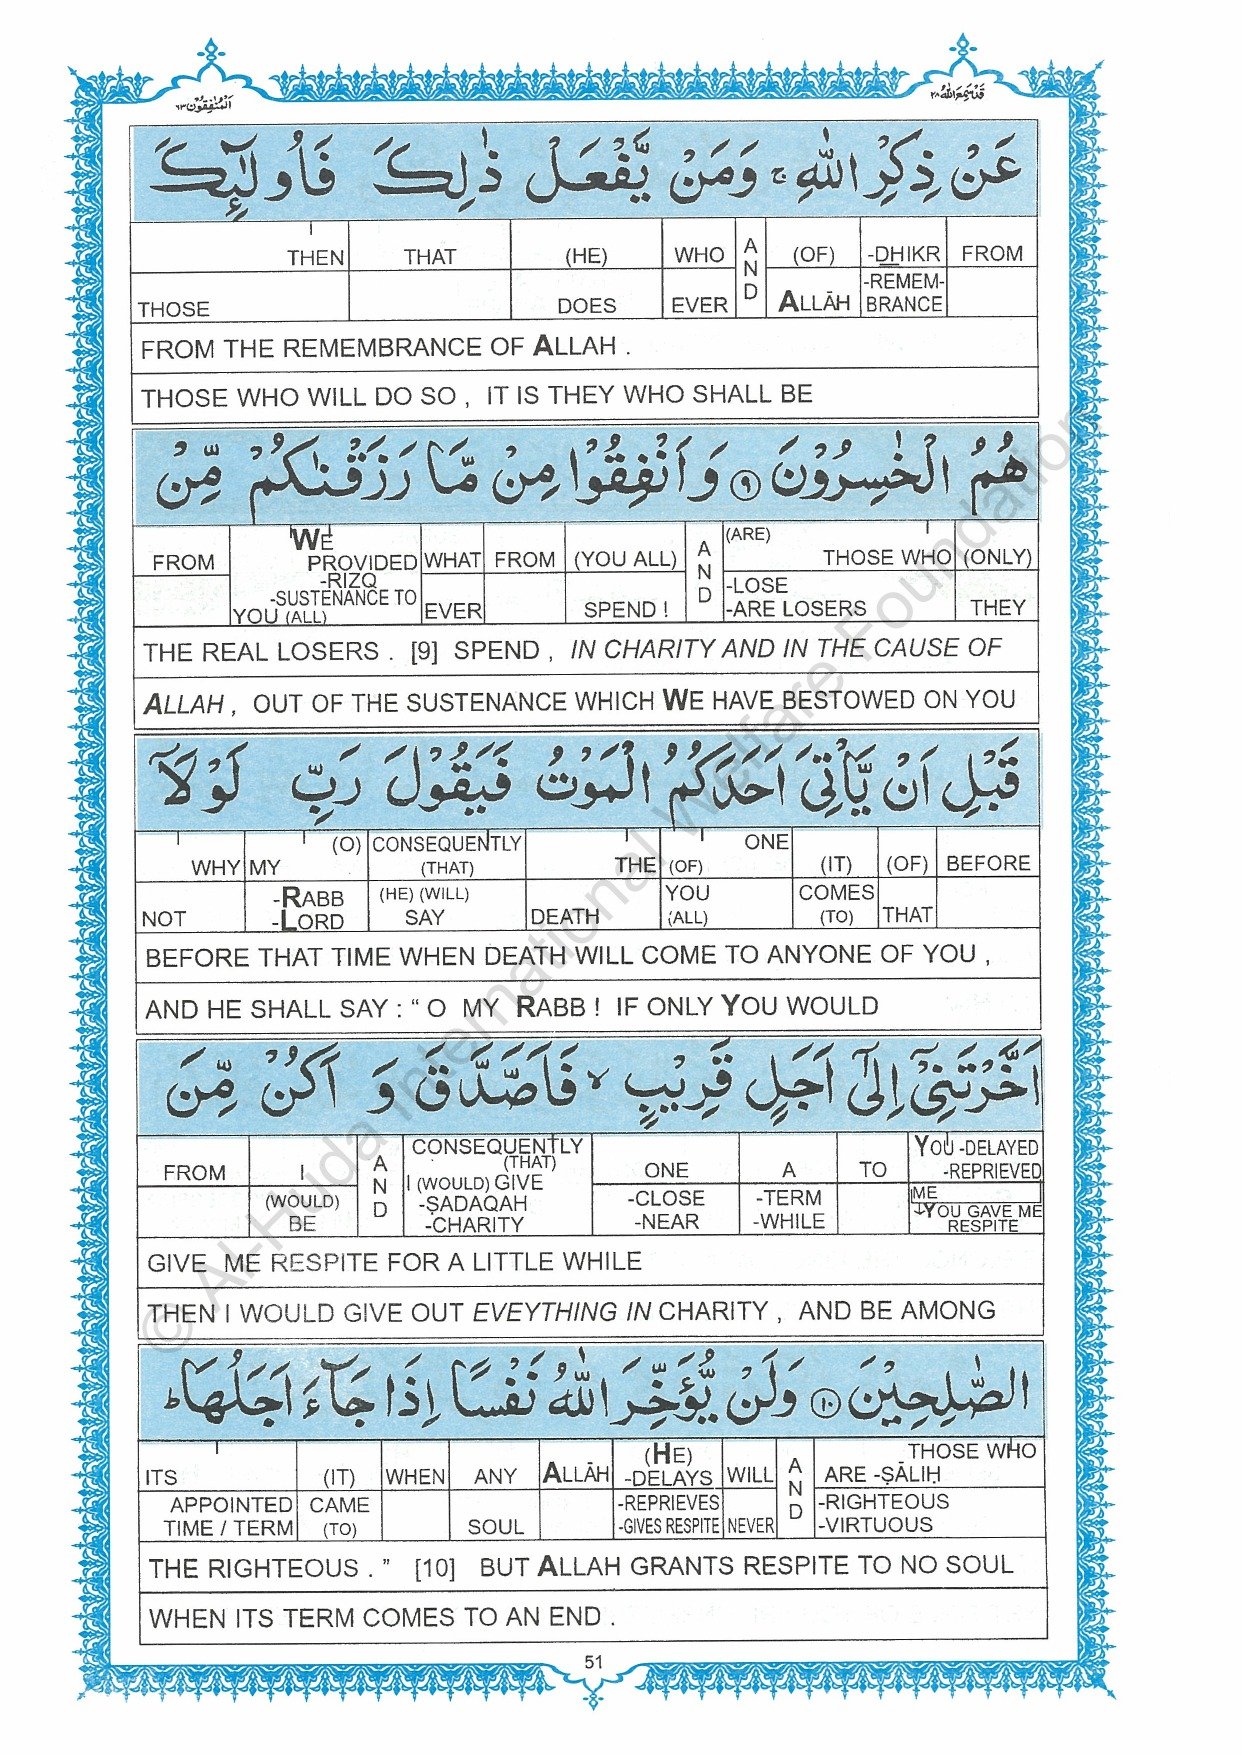 المنفقون ٦٣
قد سمع الله ٢٨
عَنْ ذِكْرِ اللّٰهِ ۚ وَمَنْ يَّفْعَلْ ذٰلِكَ فَاُولٰٓئِكَ
THEN THAT (HE) WHO AND (OF) -DHIKR FROM
THOSE DOES EVER ALLĀH -REMEM-BRANCE
FROM THE REMEMBRANCE OF ALLAH .
THOSE WHO WILL DO SO , IT IS THEY WHO SHALL BE
هُمُ الْخٰسِرُوْنَ ۹ وَاَنْفِقُوْا مِنْ مَّا رَزَقْنٰكُمْ مِّنْ
FROM WE PROVIDED -RIZQ WHAT FROM (YOU ALL) AND (ARE) THOSE WHO (ONLY)
-SUSTENANCE TO YOU (ALL) EVER SPEND ! -LOSE -ARE LOSERS THEY
THE REAL LOSERS . [9] SPEND , IN CHARITY AND IN THE CAUSE OF
ALLAH , OUT OF THE SUSTENANCE WHICH WE HAVE BESTOWED ON YOU
قَبْلِ اَنْ يَّاْتِيَ اَحَدَكُمُ الْمَوْتُ فَيَقُوْلَ رَبِّ لَوْلَآ
WHY MY (O) CONSEQUENTLY (THAT) THE (OF) ONE (IT) (OF) BEFORE
NOT -RABB -LORD (HE) (WILL) SAY DEATH YOU (ALL) COMES (TO) THAT
BEFORE THAT TIME WHEN DEATH WILL COME TO ANYONE OF YOU ,
AND HE SHALL SAY : “ O MY RABB ! IF ONLY YOU WOULD
اَخَّرْتَنِيْٓ اِلٰٓى اَجَلٍ قَرِيْبٍ ۙ فَاَصَّدَّقَ وَ اَكُنْ مِّنَ
FROM I AND CONSEQUENTLY (THAT) ONE A TO YOU -DELAYED -REPRIEVED
(WOULD) BE I (WOULD) GIVE -ṢADAQAH -CHARITY -CLOSE -NEAR -TERM -WHILE ME ↓YOU GAVE ME RESPITE
GIVE ME RESPITE FOR A LITTLE WHILE
THEN I WOULD GIVE OUT EVEYTHING IN CHARITY , AND BE AMONG
الصّٰلِحِيْنَ ۱۰ وَلَنْ يُّؤَخِّرَ اللّٰهُ نَفْسًا اِذَا جَآءَ اَجَلُهَا ؕ
ITS (IT) WHEN ANY ALLĀH (HE) -DELAYS WILL AND THOSE WHO ARE -ṢĀLIḤ
APPOINTED TIME / TERM CAME (TO) SOUL -REPRIEVES -GIVES RESPITE NEVER -RIGHTEOUS -VIRTUOUS
THE RIGHTEOUS . ” [10] BUT ALLAH GRANTS RESPITE TO NO SOUL
WHEN ITS TERM COMES TO AN END .
51
© Al-Huda International Welfare Foundation